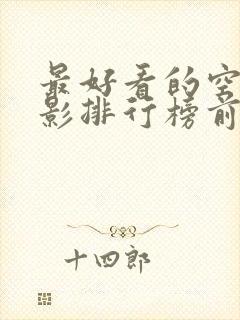 最好看的空
影排行榜前
十四郎